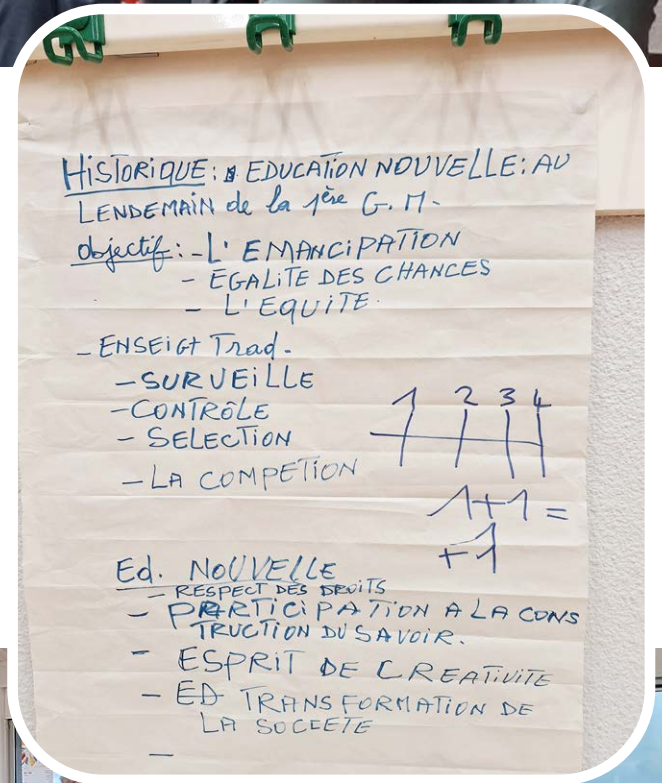 HISTORIQUE: EDUCATION NOUVELLE: AU
LENDEMAIN de la 1ère G.M-
objectif: - L'EMANCIPATION
- EGALITE DES CHANCES
- L'EQUITE.
- ENSEIGt Trad-
- SURVEILLE
- CONTRÔLE
- SELECTION
- LA COMPETION
1 2 3 4
1+1=
+1
Ed. NOUVELLE
- RESPECT DES DROITS
- PARTICIPATION A LA CONS
TRUCTION DU SAVOIR.
- ESPRIT DE CREATIVITE
- ED TRANSFORMATION DE
LA SOCIETE
-